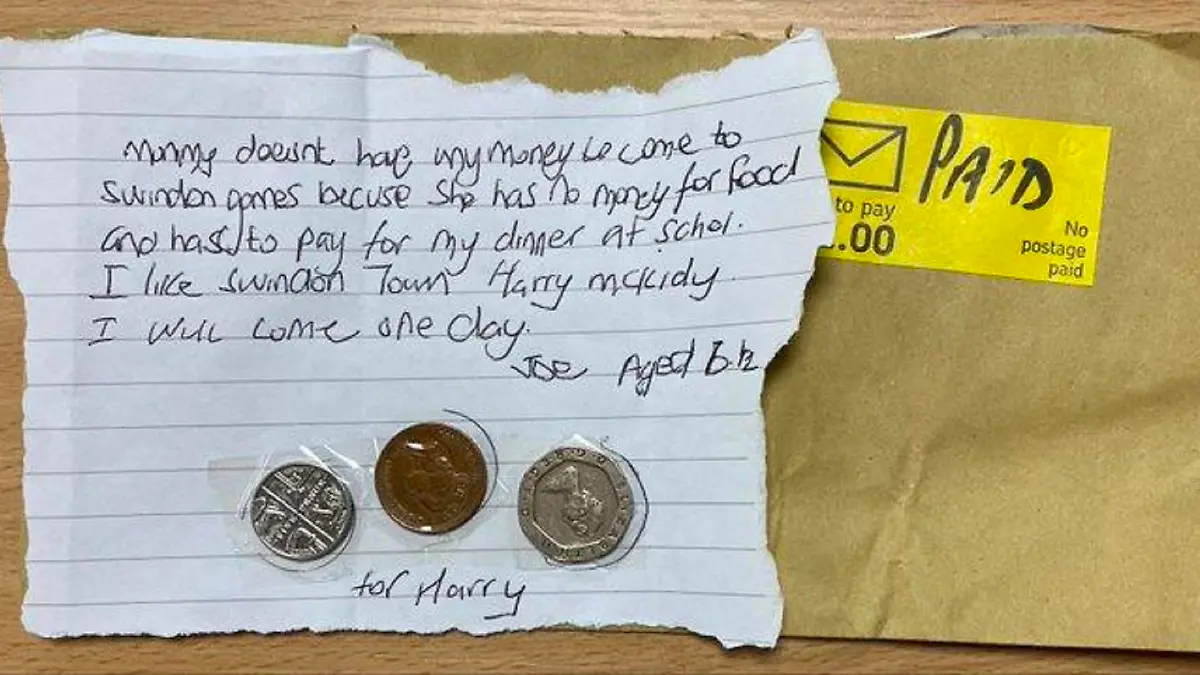 mummy doesnt have any money to come to
swindon games becuse she has no money for food
and hass to pay for my dinner at schol.
I like swindon Town Harry mckidy
I will come one day.
Joe Aged 6.½
for Harry
PAID
to pay
.00
No
postage
paid